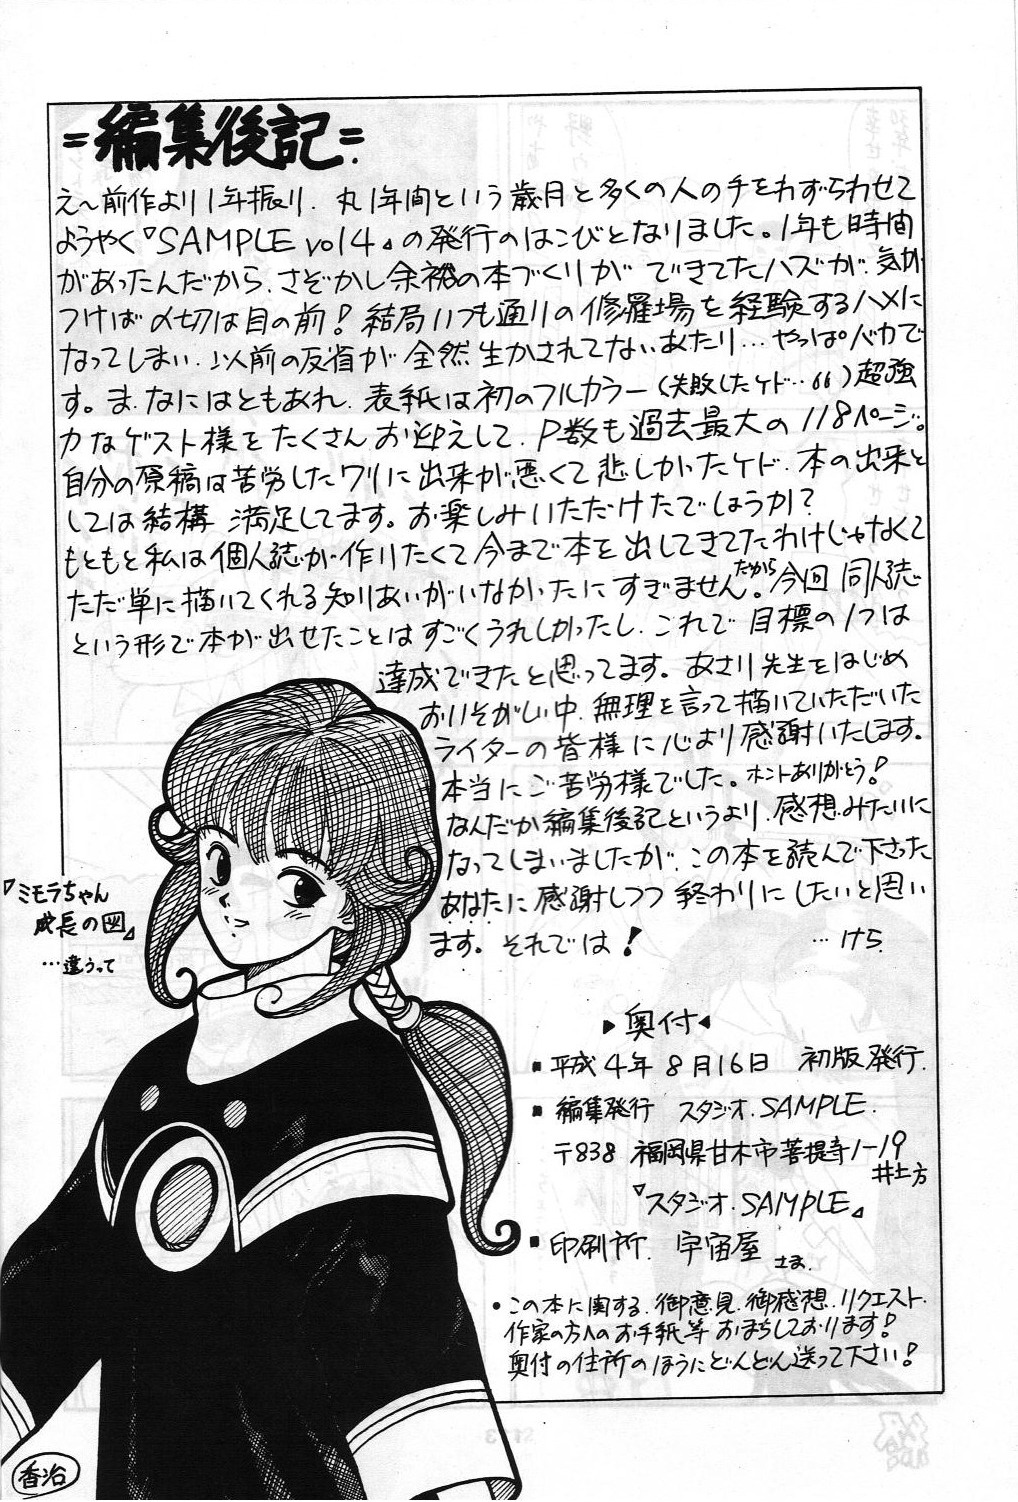 =編集後記=
え〜前作より1年振り、丸1年間という歳月と多くの人の手をわずらわせて
ようやく『SAMPLE vol4』の発行のはこびとなりました。1年も時間
があったんだから、さぞかし余裕の本づくりができてたハズが、気が
つけば〆切は目の前!結局いつも通りの修羅場を経験するハメに
なってしまい、以前の反省が全然生かされてないあたり…やっぱバカで
す。ま、なにはともあれ、表紙は初のフルカラー(失敗したケド…66)超強
力なゲスト様をたくさんお迎えして、P数も過去最大の118ページ。
自分の原稿は苦労したワリに出来が悪くて悲しかったケド、本の出来と
しては結構満足してます。お楽しみいただけたでしょうか?
もともと私は個人誌が作りたくて今まで本を出してきてたわけじゃなくて
ただ単に描いてくれる知りあいがいなかったにすぎません。だから今回同人誌
という形で本が出せたことはすごくうれしかったし、これで目標の1つは
達成できたと思ってます。あさり先生をはじめ
おいそがしい中、無理を言って描いていただいた
ライターの皆様に心より感謝いたします。
本当にご苦労様でした。ホントありがとう!
なんだか編集後記というより、感想みたいに
なってしまいましたが、この本を読んで下さった
あなたに感謝しつつ終わりにしたいと思い
ます。それでは!
…けら
『ミモラちゃん
成長の図』
…違うって
▶奥付◀
■平成4年8月16日 初版発行.
■編集発行 スタジオ.SAMPLE.
〒838 福岡県甘木市菩提寺1-19
井土方
『スタジオ.SAMPLE』
■印刷所. 宇宙屋さま.
•この本に関する、御意見、御感想、リクエスト、
作家の方へのお手紙等おまちしております!
奥付の住所のほうにどんどん送って下さい!
香治